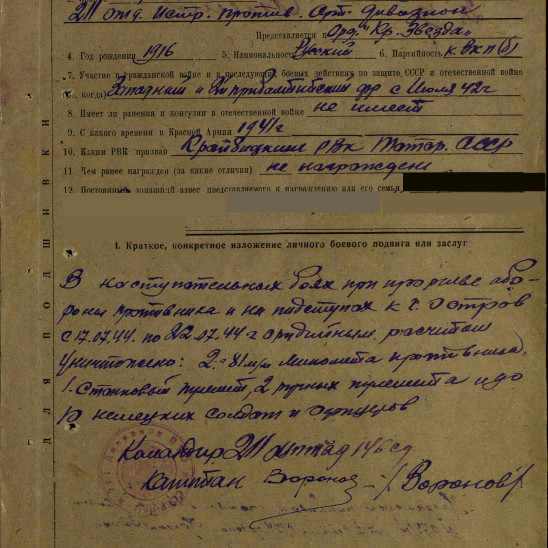 211 отд. Истр. Против. Арт. Дивизион
Представляется к Орд. "Кр. Звезда"
4. Год рождения 1916 5. Национальность Русский 6. Партийность к. ВКП(б)
7. Участие в гражданской войне и в последующих боевых действиях по защите СССР и отечественной войне
когда) Западный и 2й прибалтийский фр с Июля 42г
8. Имеет ли ранения и контузии в отечественной войне не имеет
9. С какого времени в Красной Армии 1941г
10. Каким РВК призван РВК Татар. АССР
11. Чем ранее награжден (за какие отличия) не награжден
12. Постоянный домашний адрес представляемого к награждению или его семьи
1. Краткое, конкретное изложение личного боевого подвига или заслуг
В наступательных боях при прорыве обо-
роны противника и на подступах к г. Остров
с 17.07.44. по 22.07.44 г орудийным расчетом
Уничтожено: 2 - 81 м/м миномета противника,
1. Станковый пулемет, 2 ручных пулемета и до
10 немецких солдат и офицеров
Командир 211 оиптад 146 сд
капитан Воронов - /Воронов/
ДЛЯ ПОДШИВКИ